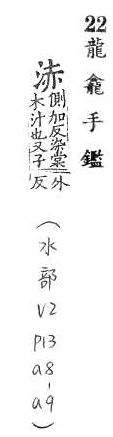 22龍龕手鑑
㳵側加反染棠
木汁也又子外
反
(水部V2
P13
a8、
a9)